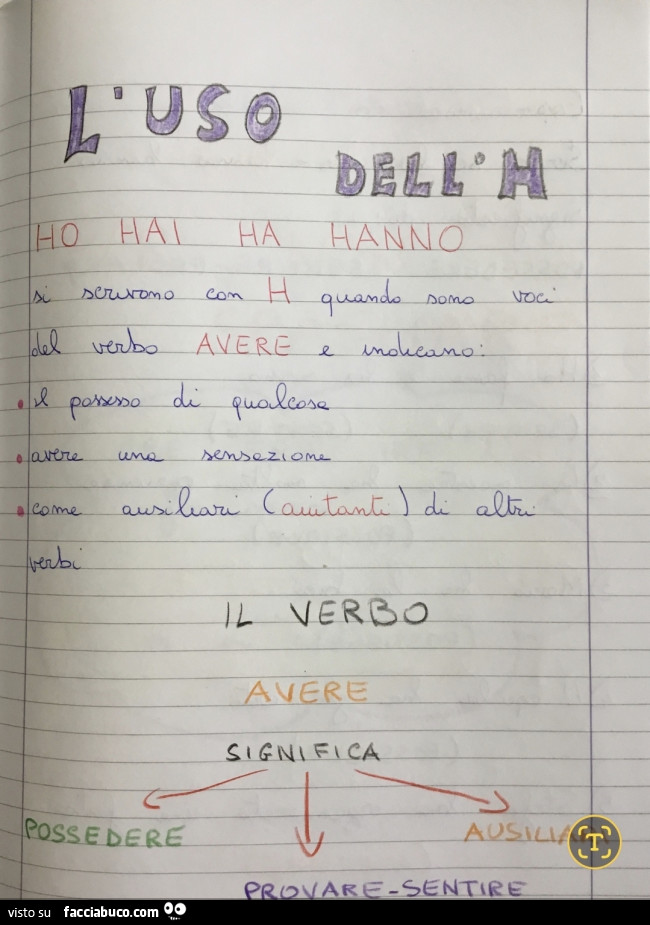 L'USO
DELL'H
HO HAI HA HANNO
si scrivono con H quando sono voci
del verbo AVERE e indicano:
• il possesso di qualcosa
• avere una sensazione
• come ausiliari (aiutanti) di altri
verbi
IL VERBO
AVERE
SIGNIFICA
POSSEDERE
AUSILIA
T
PROVARE-SENTIRE
visto su facciabuco.com